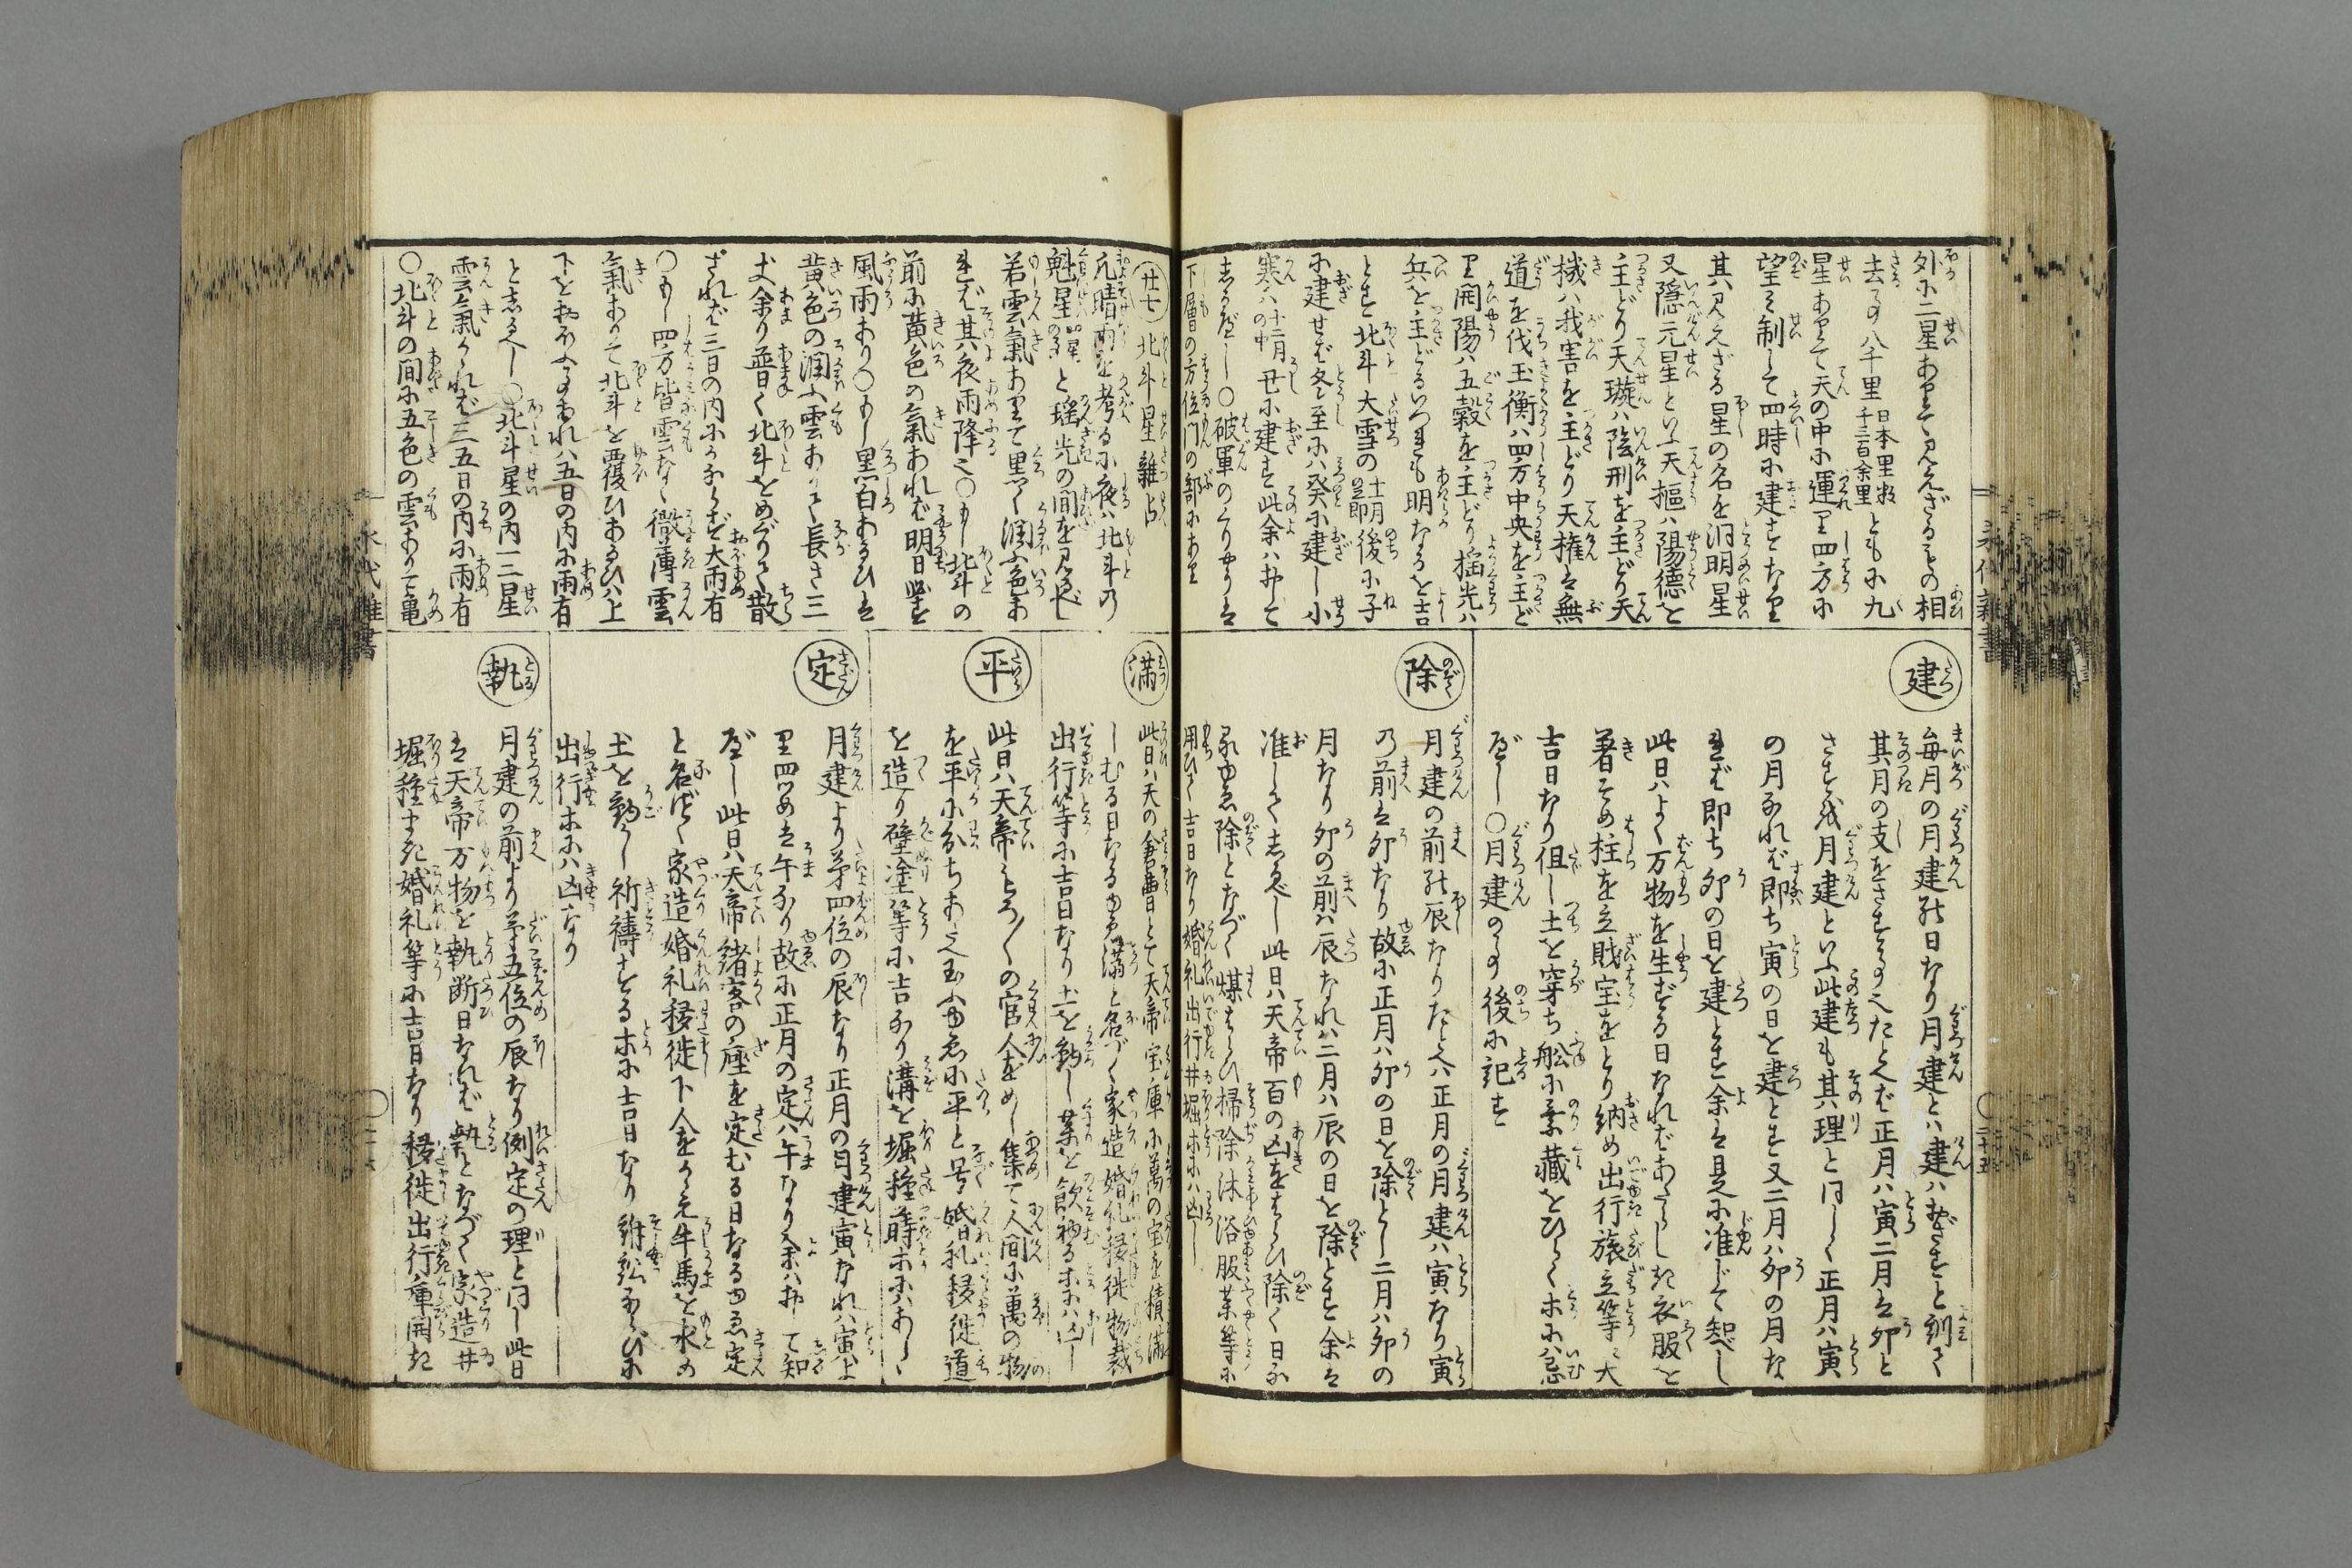 外に二星ありて見えざるもの相
去る事八千里日本里数千三百余里とも小九
星ありて天の中に運り四方に
望み制して四時に建すなり
其見えざる星の名を洞明星
又隠元星といふ天樞ハ陽徳を
主どり天璇ハ陰刑を主どり天
機ハ我害を主どり天権は無
道を伐玉衡ハ四方中央を主ど
り開陽ハ五穀を主どり揺光ハ
兵を主どるいづれも明なるを吉
とす北斗大雪の十一月の節後に子
に建せば冬至にハ癸に建し小
寒ハ十二月の中丑に建す此余ハ推て
しるべし〇破軍のくりやうは
下層の方位門の部にあり
建
毎月の月建の日なり月建とハ建ハおざすと訓て
其月の支をさす事也たとへば正月ハ寅二月は卯と
さすを月建といふ此建も其理と同じく正月ハ寅
の月なれば即ち寅の日を建とす又二月ハ卯の月な
れば即ち卯の日を建とす余は是に准じて知べし
此日ハよく万物を生ずる日なればあたらしき衣服を
着そめ柱を立財宝をとり納め出行旅立等ハ大
吉日なり但し土を穿ち舩に乗藏をひらく等にハ忌
べし〇月建の事後に記す
除
月建の前の辰なりたとへハ正月の月建ハ寅なり寅
の前は卯なり故に正月ハ卯の日を除とし二月ハ卯の
月なり卯の前ハ辰なれハ二月ハ辰の日を除とす余は
准じてしるべし此日ハ天帝百の凶をはらひ除く日な
るゆゑ除となづく煤はらひ掃除沐浴服薬等に
用ひて吉日なり婚礼出行井堀等にハ凶し
廿七 北斗星雑占
凡晴雨を考るに夜ハ北斗の
魁星と瑤光の間を見るべし
若雲氣ありて黒く潤ふ色あ
れば其夜雨降也〇もし北斗の
前に黄色の氣あれば明日必ず
風雨あり〇もし黒白あるひは
黄色の潤ふ雲ありて長さ三
丈余り普く北斗をめぐりて散
ざれば三日の内にかならず大雨有
〇もし四方皆雲なく微薄雲
氣ありて北斗を覆ひあるひハ上
下をおほふ事あれハ五日の内に雨有
としるべし〇北斗星の内一二星
雲氣くれば三五日の内に雨有
〇北斗の間に五色の雲ありて亀
満
此日ハ天の倉曹とて天帝宝庫に萬の宝を積満
しむる日なるゆゑ満と名づく家造婚礼移徙物裁
出行等に吉日なり土を動し薬を飲初る等ハ凶し
平
此日ハ天帝もろ〳〵の官人をめし集て人間に萬の物
を平に分ちあたへ玉ふゆゑに平と号婚礼移徙道
を造り壁塗等に吉なり溝を堀種蒔等にハあしゝ
定
月建より第四位の辰なり正月の月建寅なれハ寅よ
り四つめは午なり故に正月の定ハ午なり余ハ推て知
べし此日ハ天帝諸客の座を定むる日なるゆゑ定
と名づく家造婚礼移徙下人をかゝえ牛馬を求め
土を動し祈禱するに吉日なり訴訟ならびに
出行等ハ凶なり
執
月建の前より第五位の辰なり例定の理と同じ此日
は天帝万物を執断日なれば執となづく家造井
堀種まき婚礼等に吉日なり移徙出行庫開き
永代雑書
永代雜書
〇二十五